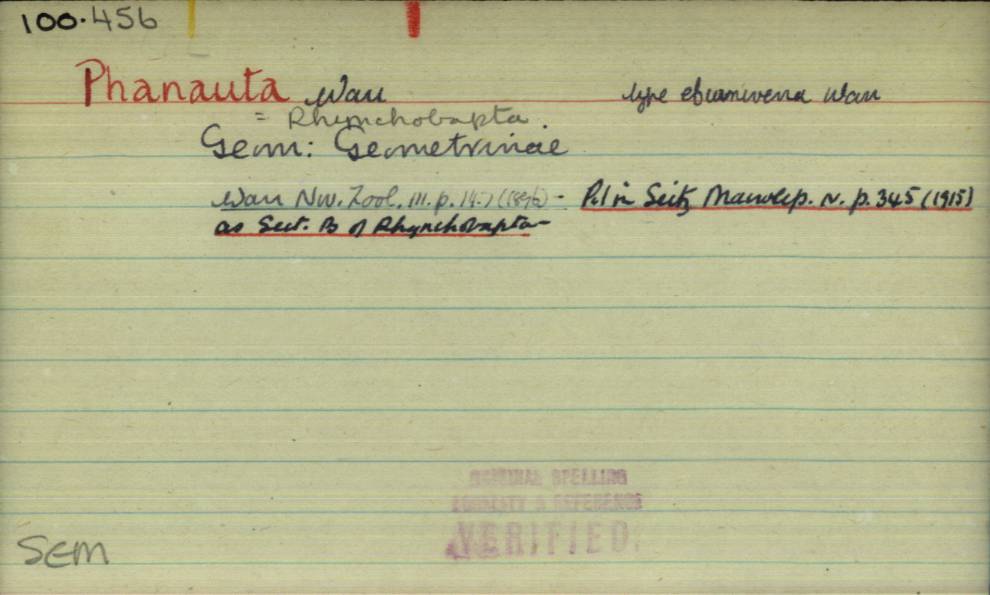 100.456
Phanauta Warr type eburnivena Warr
= Rhynchobapta.
Geom: Geometrinae
Warr Nov. Zool. III. p. 147 (1896) - Pr. in Seitz Macrolep. IV. p. 345 (1915)
as Sect. B of Rhynchobapta-
ORIGINAL SPELLING
PRIORITY & REFERENCE
VERIFIED.
SEM